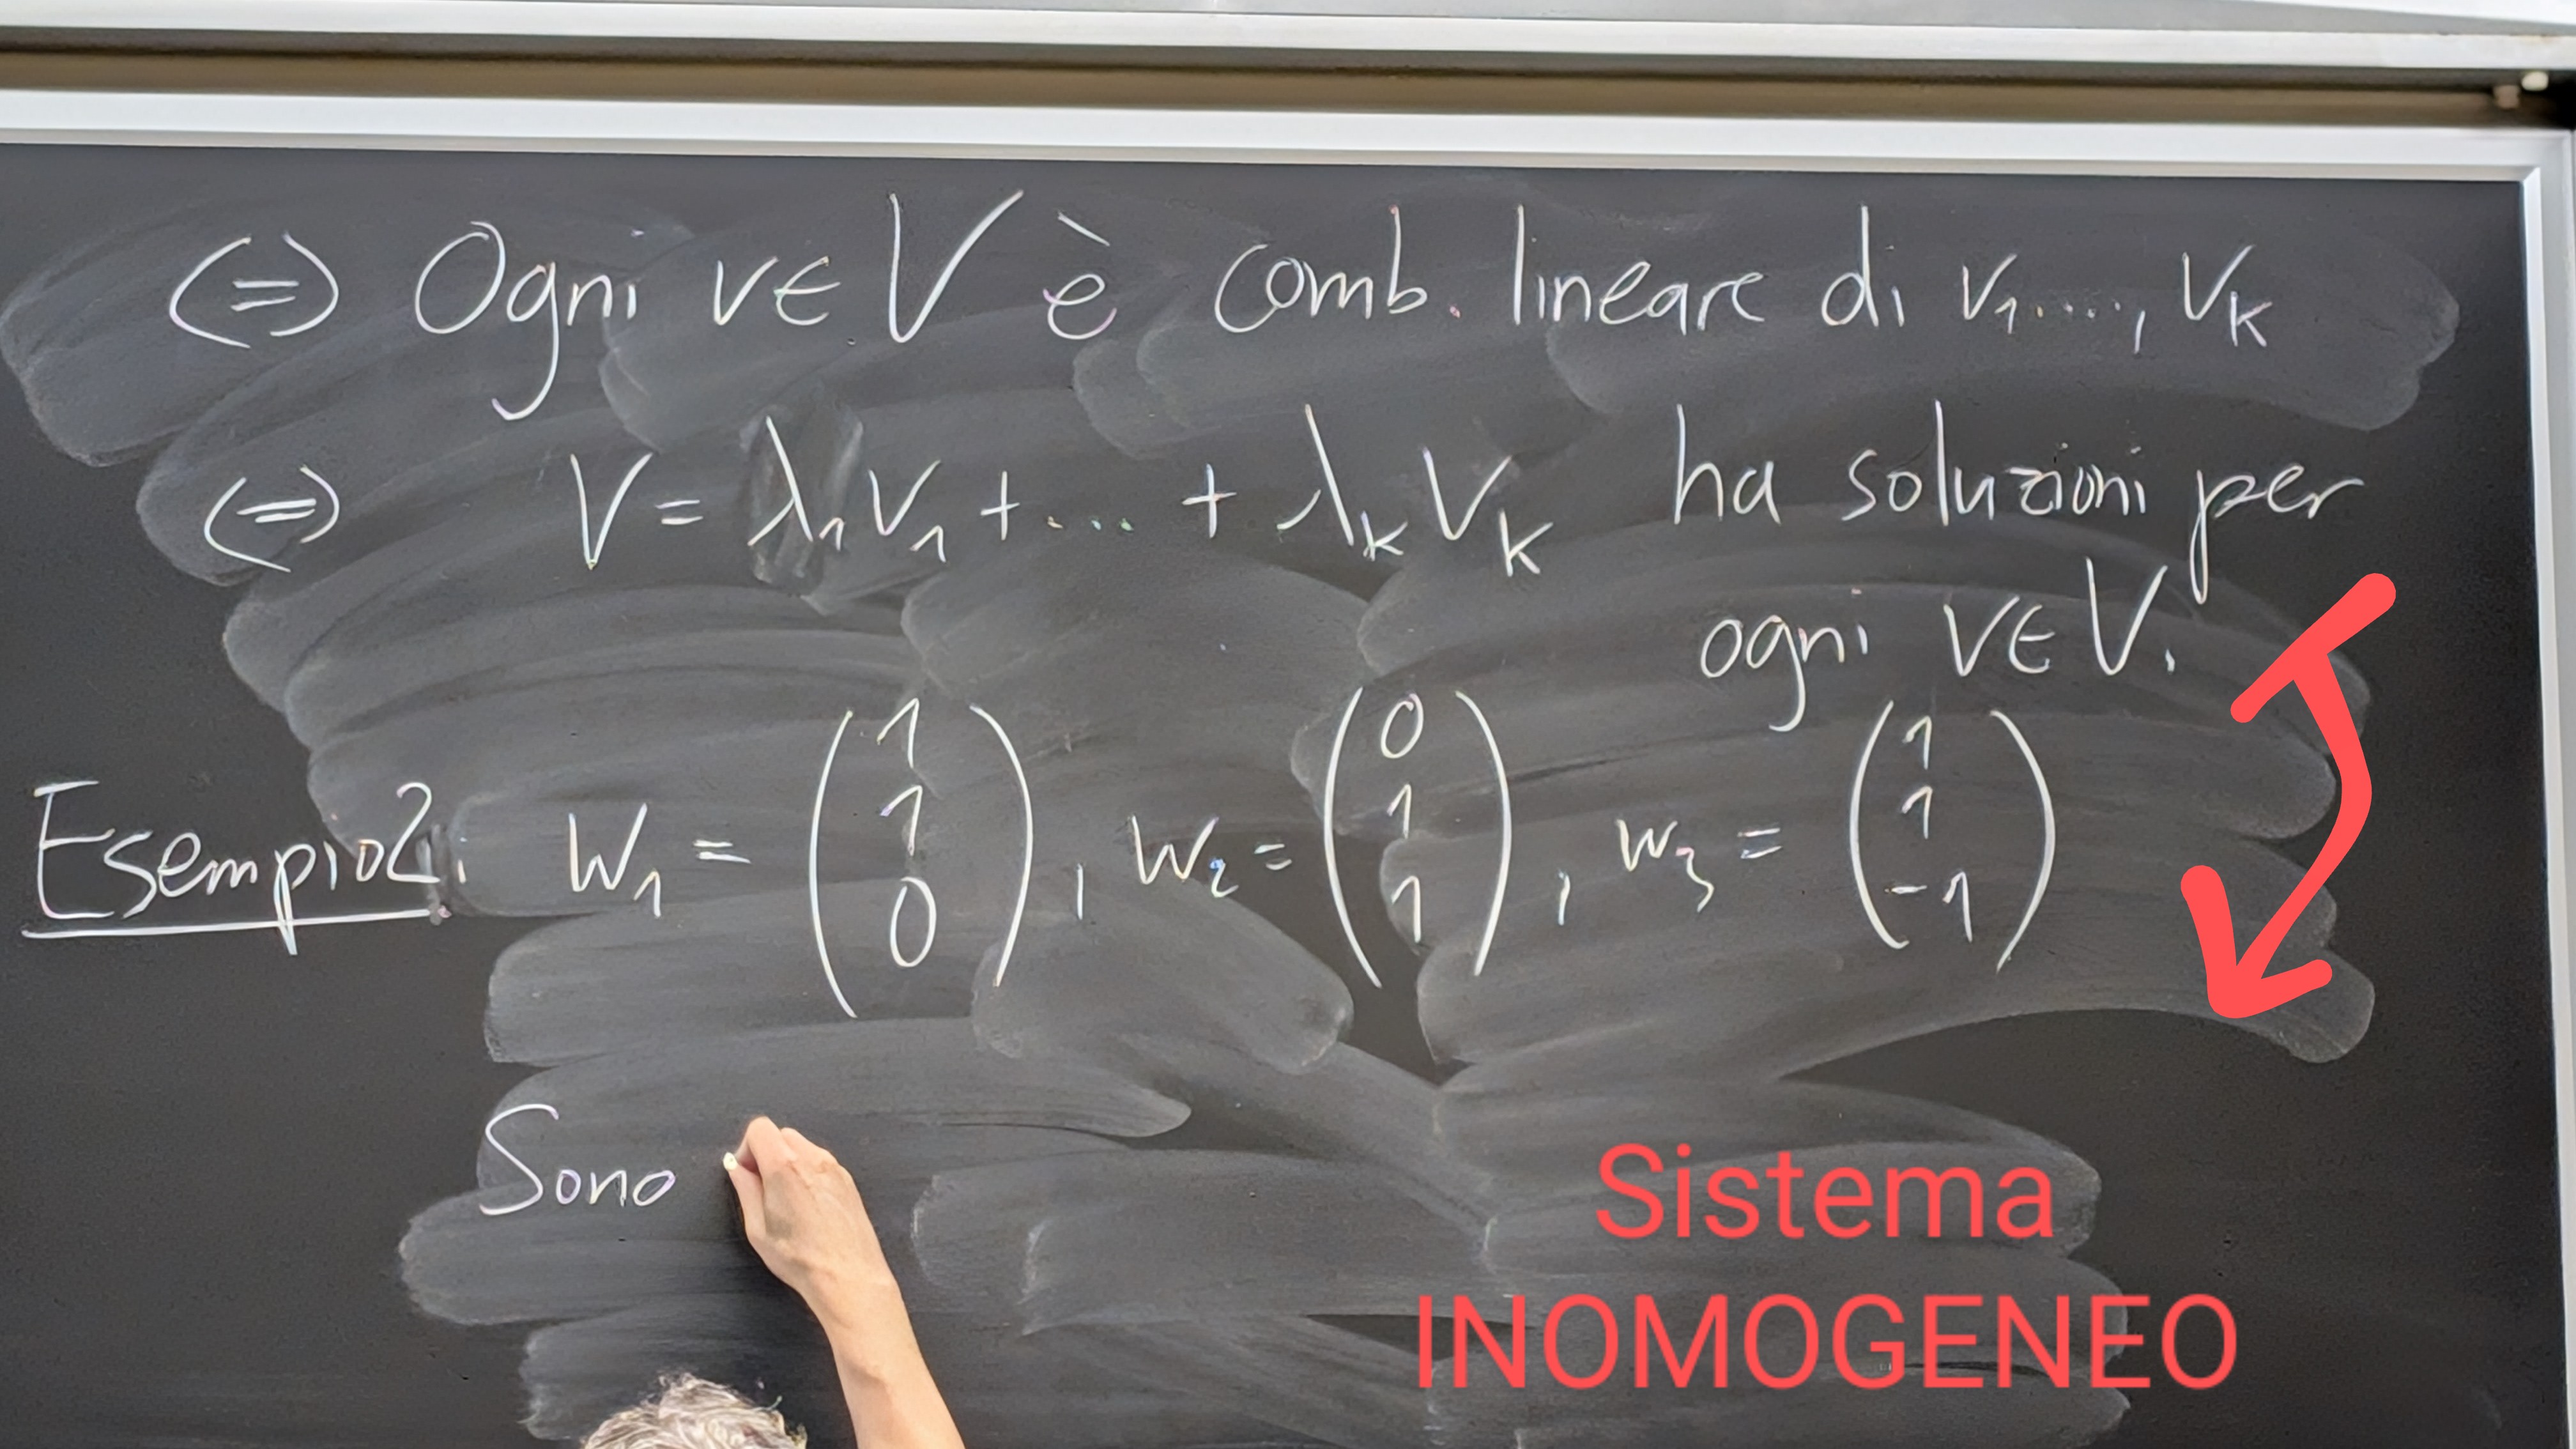 (=) Ogni v∈V è comb. lineare di v₁...., vₖ
(=) V = λ₁v₁ + ... + λₖvₖ ha soluzioni per
ogni v∈V.
Esempio2: w₁ = (1 1 0), w₂ = (0 1 1), w₃ = (1 1 -1)
Sono
Sistema
INOMOGENEO